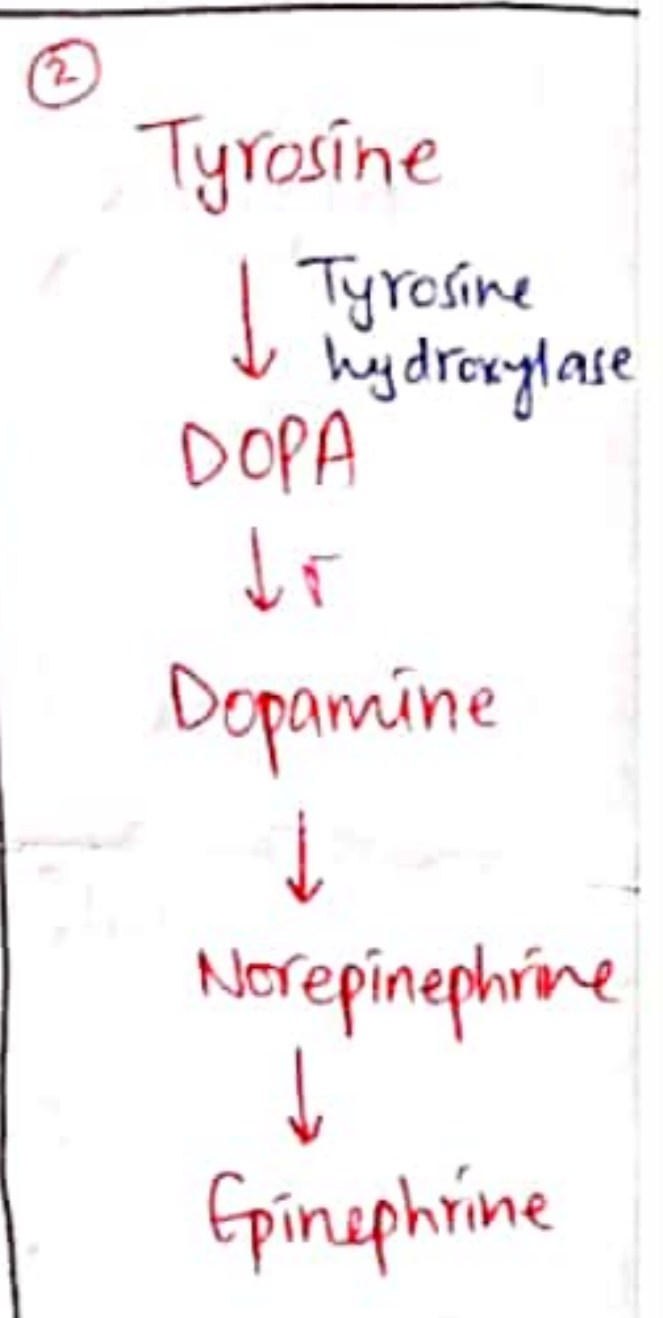 2
Tyrosine
↓ Tyrosine
hydroxylase
DOPA
↓
Dopamine
↓
Norepinephrine
↓
Epinephrine